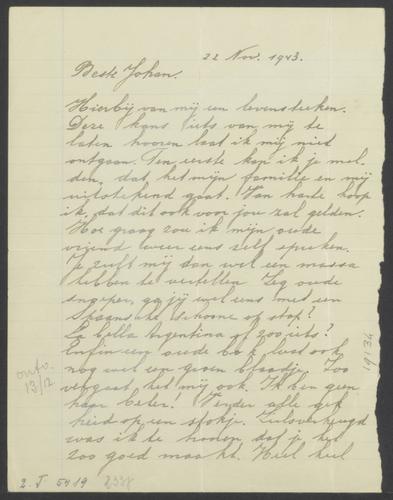 22 Nov. 1943.
Beste Johan.
Hierbij van mij een levensteeken.
Deze kans iets van mij te
laten hooren laat ik mij niet
ontgaan. Ten eerste kan ik je mel-
den, dat het mijn familie en mij
uitstekend gaat. Van harte hoop
ik, dat dit ook voor jou zal gelden.
Hoe graag zou ik mijn oude
vriend weer eens zelf spreken.
Je zult mij dan wel een massa
hebben te vertellen. Zeg oude
snoeper, ga jij wel eens met een
Spaansche schoone op stop?
La bella Argentina of zoo iets?
Enfin een oude bok lust ook
nog wel een groen blaadje. Zoo
vergaat het mij ook. Ik ben geen
haar beter! Verder alle gek
heid op een stokje. Zielsverheugd
was ik te hooren, dat je het
zoo goed maakt. Heel heel
ontv.
13/12
2. J 5419 2338